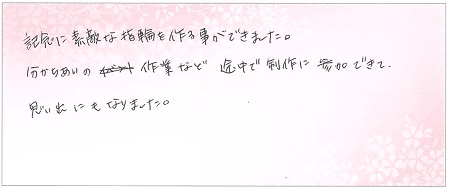 記念に素敵な指輪を作る事ができました。
分かちあいの 作業など 途中で制作に参加できて、
思い出にもなりました。